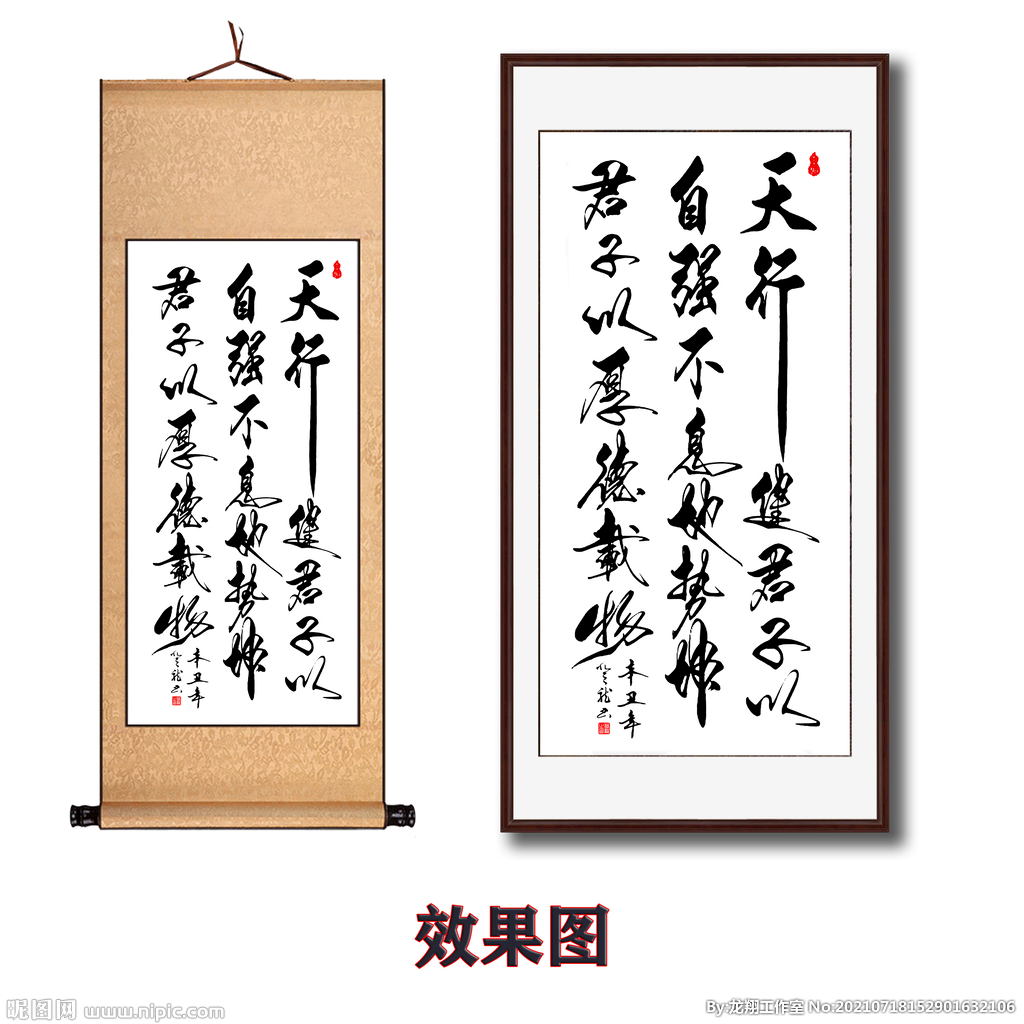 天行健君子以
自强不息地势坤
君子以厚德載物
辛丑年
天行健君子以
自强不息地势坤
君子以厚德載物
辛丑年
效果图
昵图网 www.nipic.com
By:龙翔工作室 No:20210718152901632106